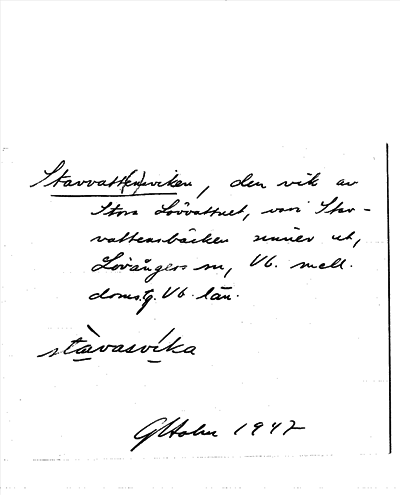 Stavvatt(en)sviken, den vik av
Stora Lövvattnet, vari Stav-
vattensbäcken rinner ut,
Lövångers sn, Vb. mell.
doms.g. Vb. län.
stàvasvíka
GHolm 1947